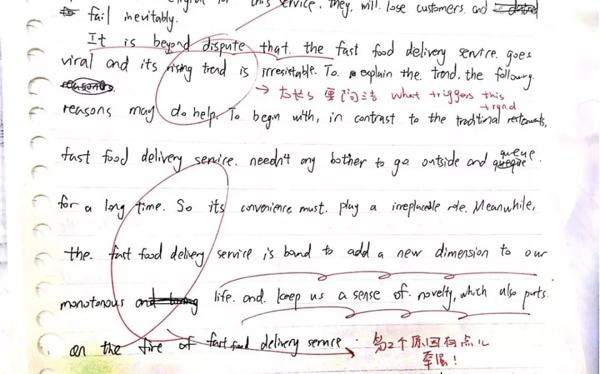 this service. they. will. lose customers. and
fail inevitably.
It is beyond dispute that. the fast food delivery service. goes
viral and its rising trend is irresistable. To explain the. trend. the following
what triggers this
trend
reasons may do help. To begin with, in contrast to the traditional restaurants,
fast food delivery service. needn't any bother to go outside and queue.
for a long time. So its convenience must. play a irreplacable role. Meanwhile,
the. fast food delivery service is bound to add a new dimension to our
monotonous life. and. keep us a sense of novelty, which also puts.
on the fire of fast food delivery service.
第2个原因有点儿
牵强！